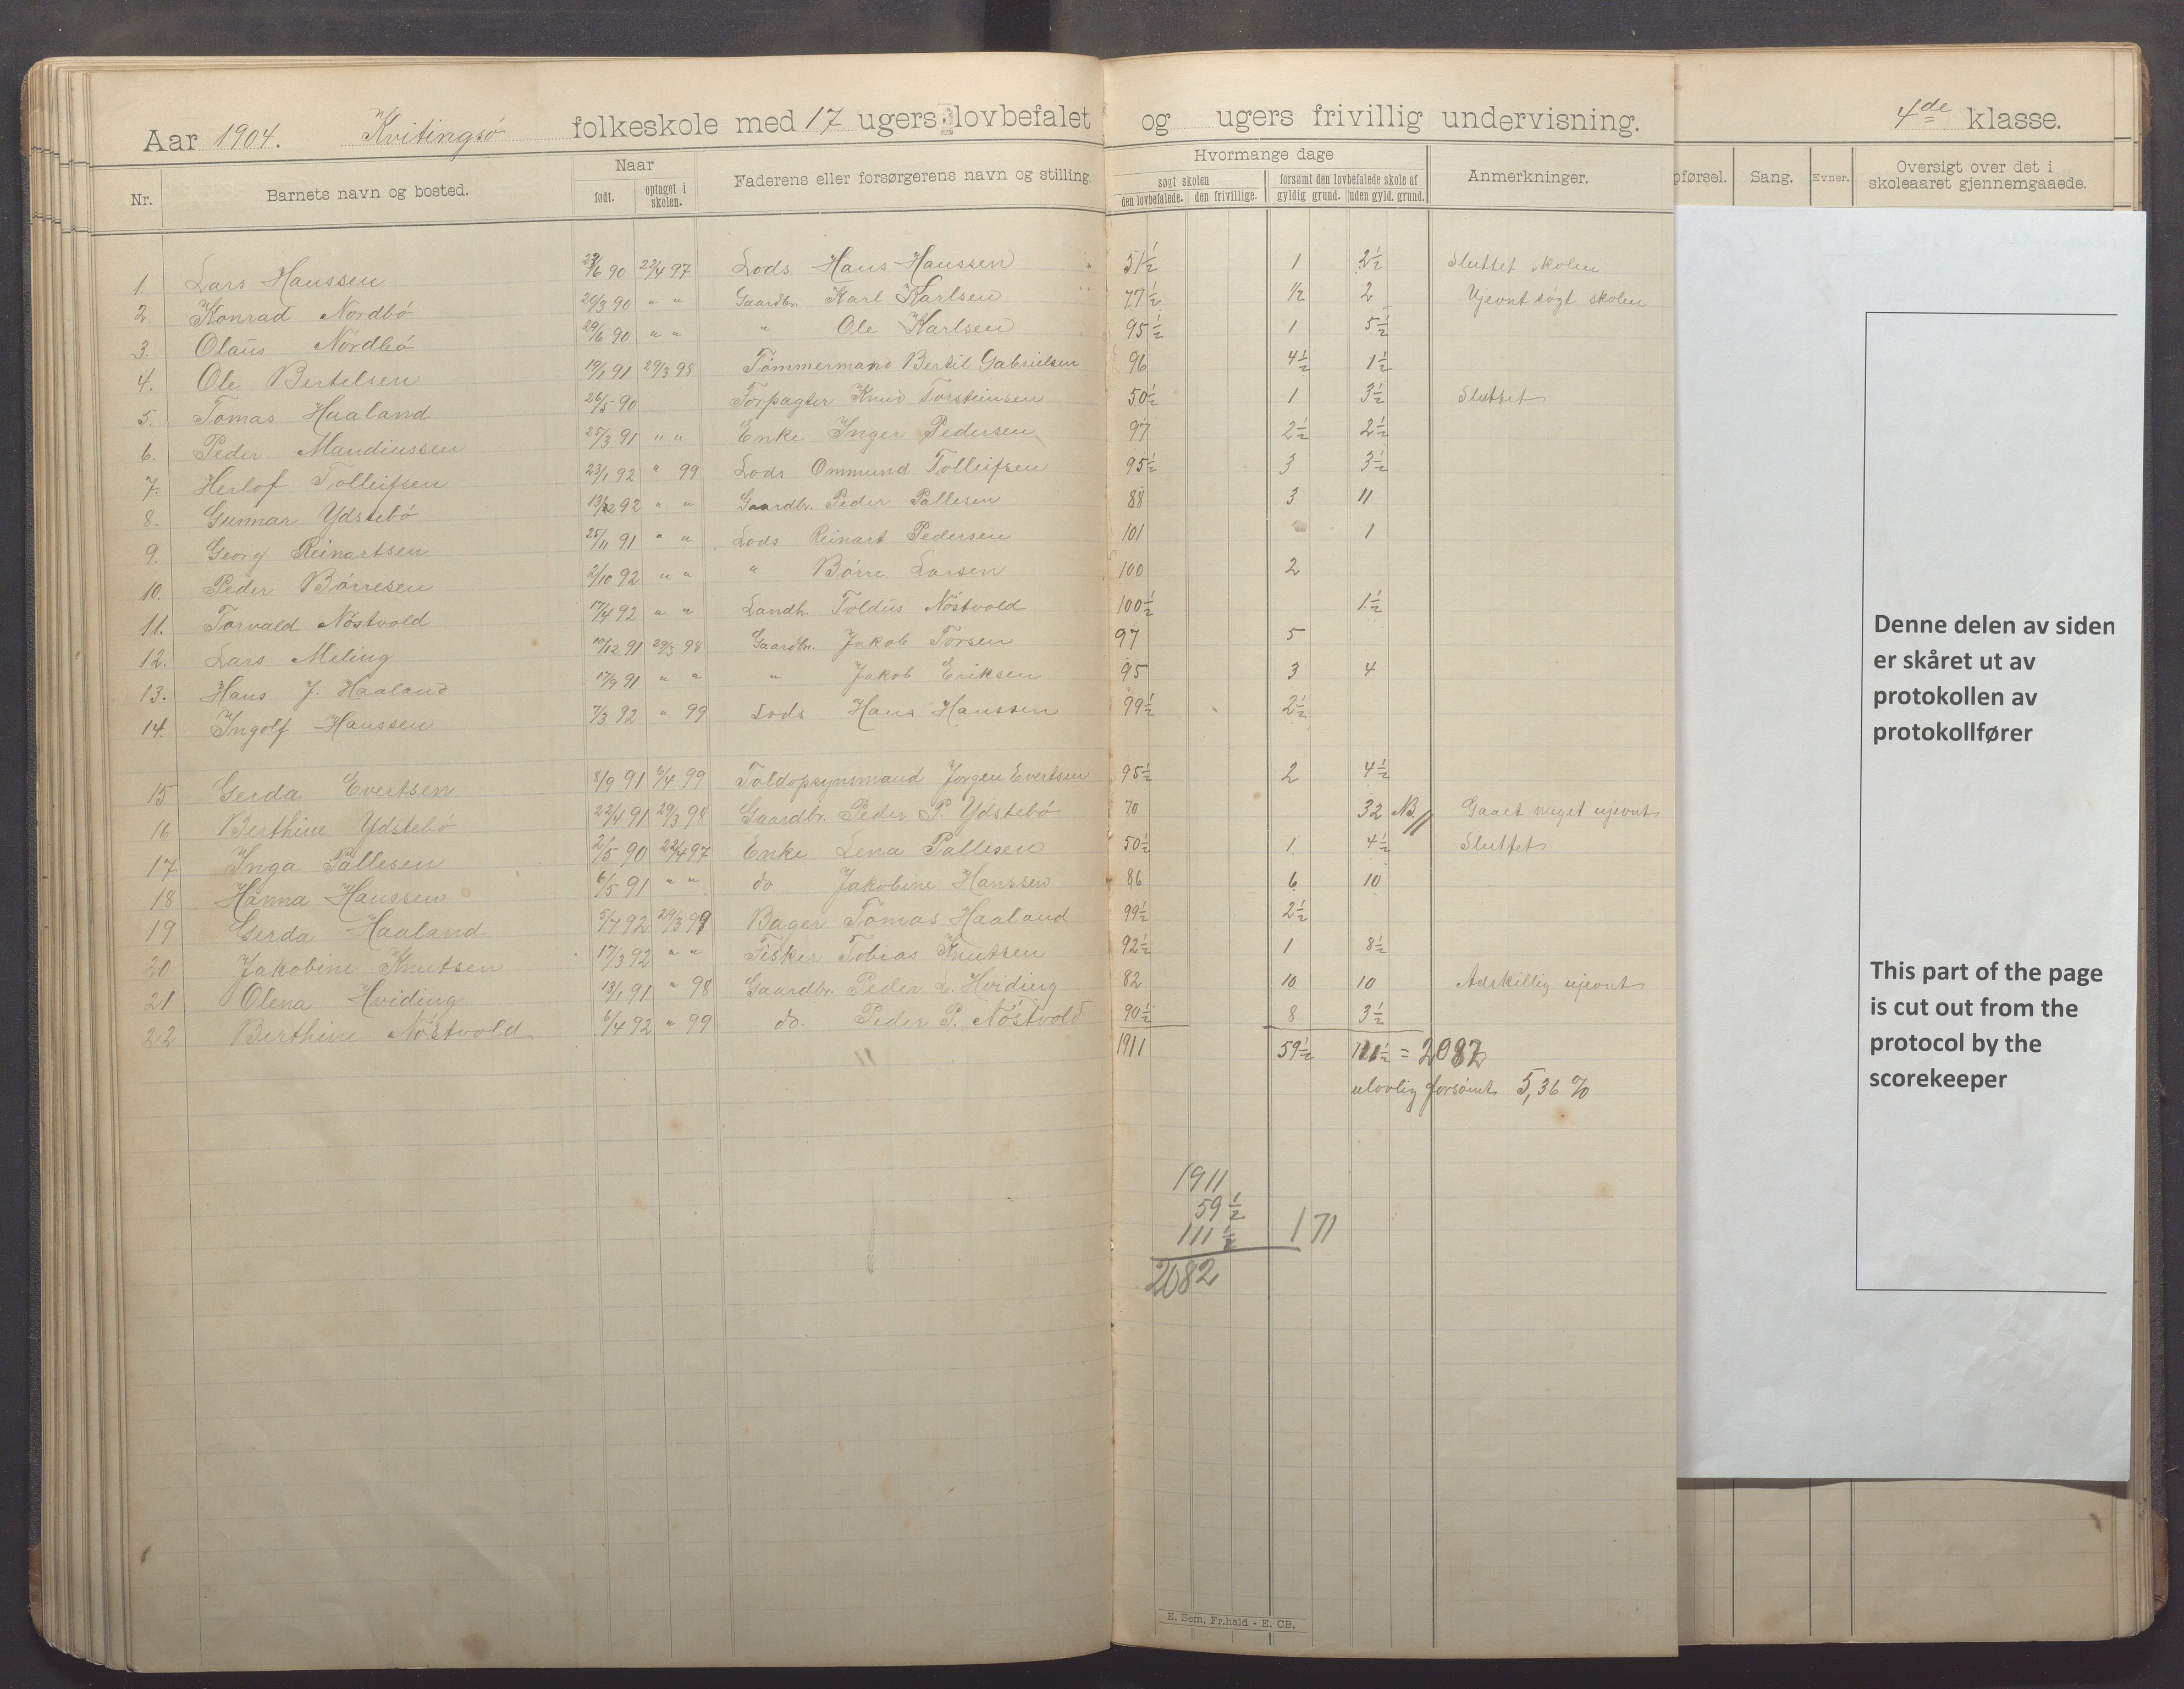 Aar 1904. Kvitingsö folkeskole med 17 ugers lovbefalet og ugers frivillig undervisning. 4de klasse.
Nr. Barnets navn og bosted. Naar født. optaget i skolen. Faderens eller forsørgerens navn og stilling. Hvormange dage søgt skolen den lovbefalede. den frivillige. forsømt den lovbefalede skole af gyldig grund. uden gyld. grund. Anmerkninger. pførsel. Sang. Evner. Oversigt over det i skoleaaret gjennemgaaede.
1. Lars Hanssen /6 90 22/4 97 Lods Hans Hanssen 51½ 1 2½ Sluttet skolen
2. Konrad Nordbö 20/3 90 " " Gaardbr. Karl Karlsen 77½ ½ 2 Ujevnt søgt skolen
3. Olaus Nordbö 29/6 90 " " " Ole Karlsen 95½ 1 5½
4. Ole Bertelsen 19/1 91 29/3 98 Tömmermand Bertil Gabrielsen 96 4½ 1½
5. Tomas Haaland 26/5 90 Forpagter Knud Torsteinsen 50½ 1 3½ Sluttet
6. Peder Mandiussen 25/3 91 " " Enke Inger Pedersen 97 2½ 2½
7. Herlof Tolleifsen 23/1 92 " 99 Lods Ommund Tolleifsen 95½ 3 3½
8. Gunnar Ydstebö 13/ 92 " " Gaardbr. Peder Pallesen 88 3 11
9. Georg Reinartsen 25/11 91 " " Lods Reinart Pedersen 101 1
10. Peder Börresen 2/10 92 " " " Börre Larsen 100 2
11. Torvald Nöstvold 17/4 92 " " Landh. Toldus Nöstvold 100½ 1½
12. Lars Meling 10/12 91 29/3 98 Gaardbr. Jakob Torsen 97 5
13. Hans J. Haaland 17/9 91 " " " Jakob Eriksen 95 3 4
14. Ingolf Hanssen 7/3 92 " 99 Lods Hans Hanssen 99½ 2½
15 Gerda Evertsen 8/9 91 6/4 99 Toldopsynsmand Jörgen Evertsen 95½ 2 4½
16 Berthine Ydstebö 22/4 91 29/3 98 Gaardbr. Peder P. Ydstebö 70 32 NB// Gaaet meget ujevnt
17 Inga Pallesen 2/5 90 22/4 97 Enke Lena Pallesen 50½ 1 4½ Sluttet
18 Hanna Hanssen 6/5 91 " " do. Jakobine Hanssen 86 6 10
19 Gerda Haaland 5/4 92 29/3 99 Bager Tomas Haaland 99½ 2½
20 Jakobine Knutsen 17/3 92 " " Fisker Tobias Knutsen 92½ 1 8½
21 Olena Hviding 13/1 91 " 98 Gaardbr. Peder L. Hviding 82 10 10 Adskillig ujevnt
22 Berthine Nöstvold 6/4 92 " 99 do. Peder P. Nöstvold 90½ 8 3½
1911 59½ 111½ = 2082
ulovlig forsömt 5,36 %
1911
59½
111½ 171
2082
E. Sem, Fr.hald - E. CB.
Denne delen av siden
er skåret ut av
protokollen av
protokollfører
This part of the page
is cut out from the
protocol by the
scorekeeper